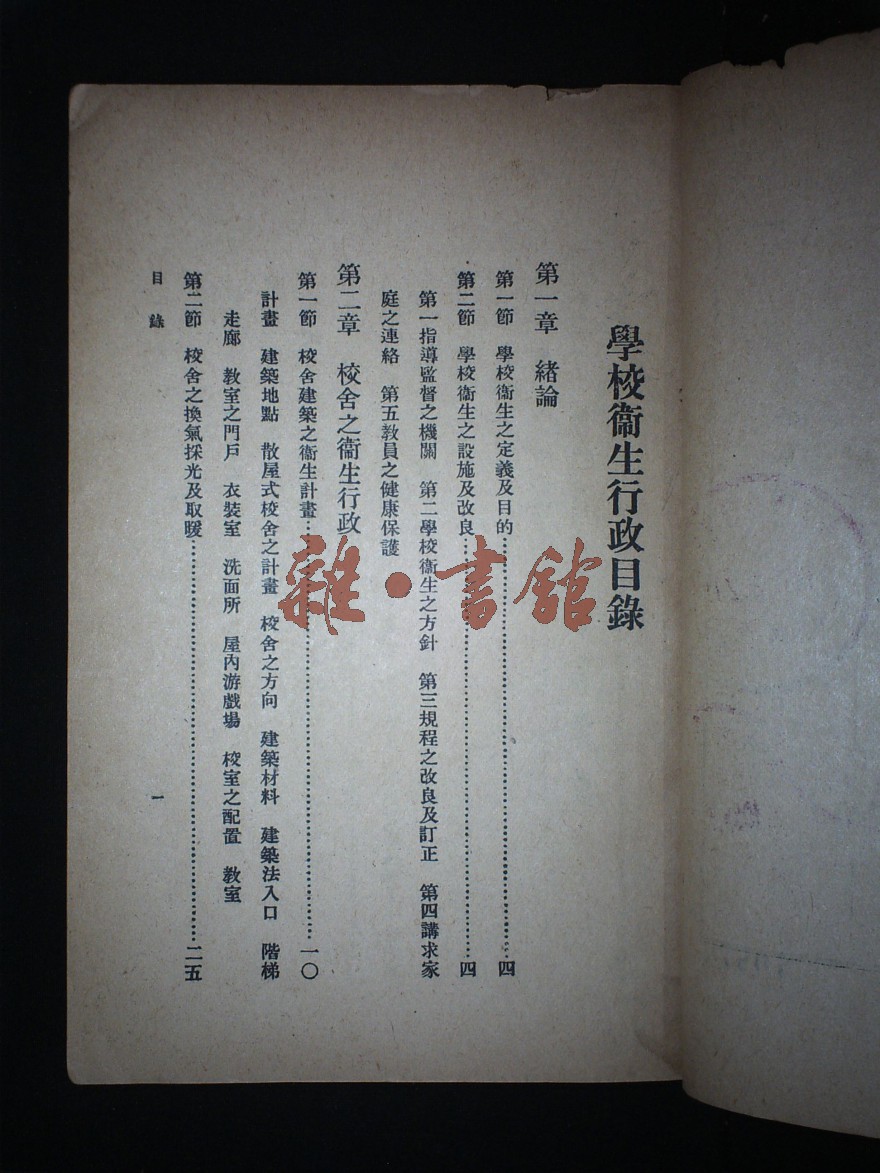 學校衞生行政目錄
第一章　緒論
第一節　學校衞生之定義及目的……………………四
第二節　學校衞生之設施及改良……………………四
第一指導監督之機關　第二學校衞生之方針　第三規程之改良及訂正　第四講求家
庭之連絡　第五教員之健康保護
第二章　校舍之衞生行政
第一節　校舍建築之衞生計畫……………………一〇
計畫　建築地點　散屋式校舍之計畫　校舍之方向　建築材料　建築法入口　階梯
走廊　教室之門戶　衣裝室　洗面所　屋內游戲場　校室之配置　教室
第二節　校舍之換氣採光及取暖……………………二五
目錄　一
雜·書館